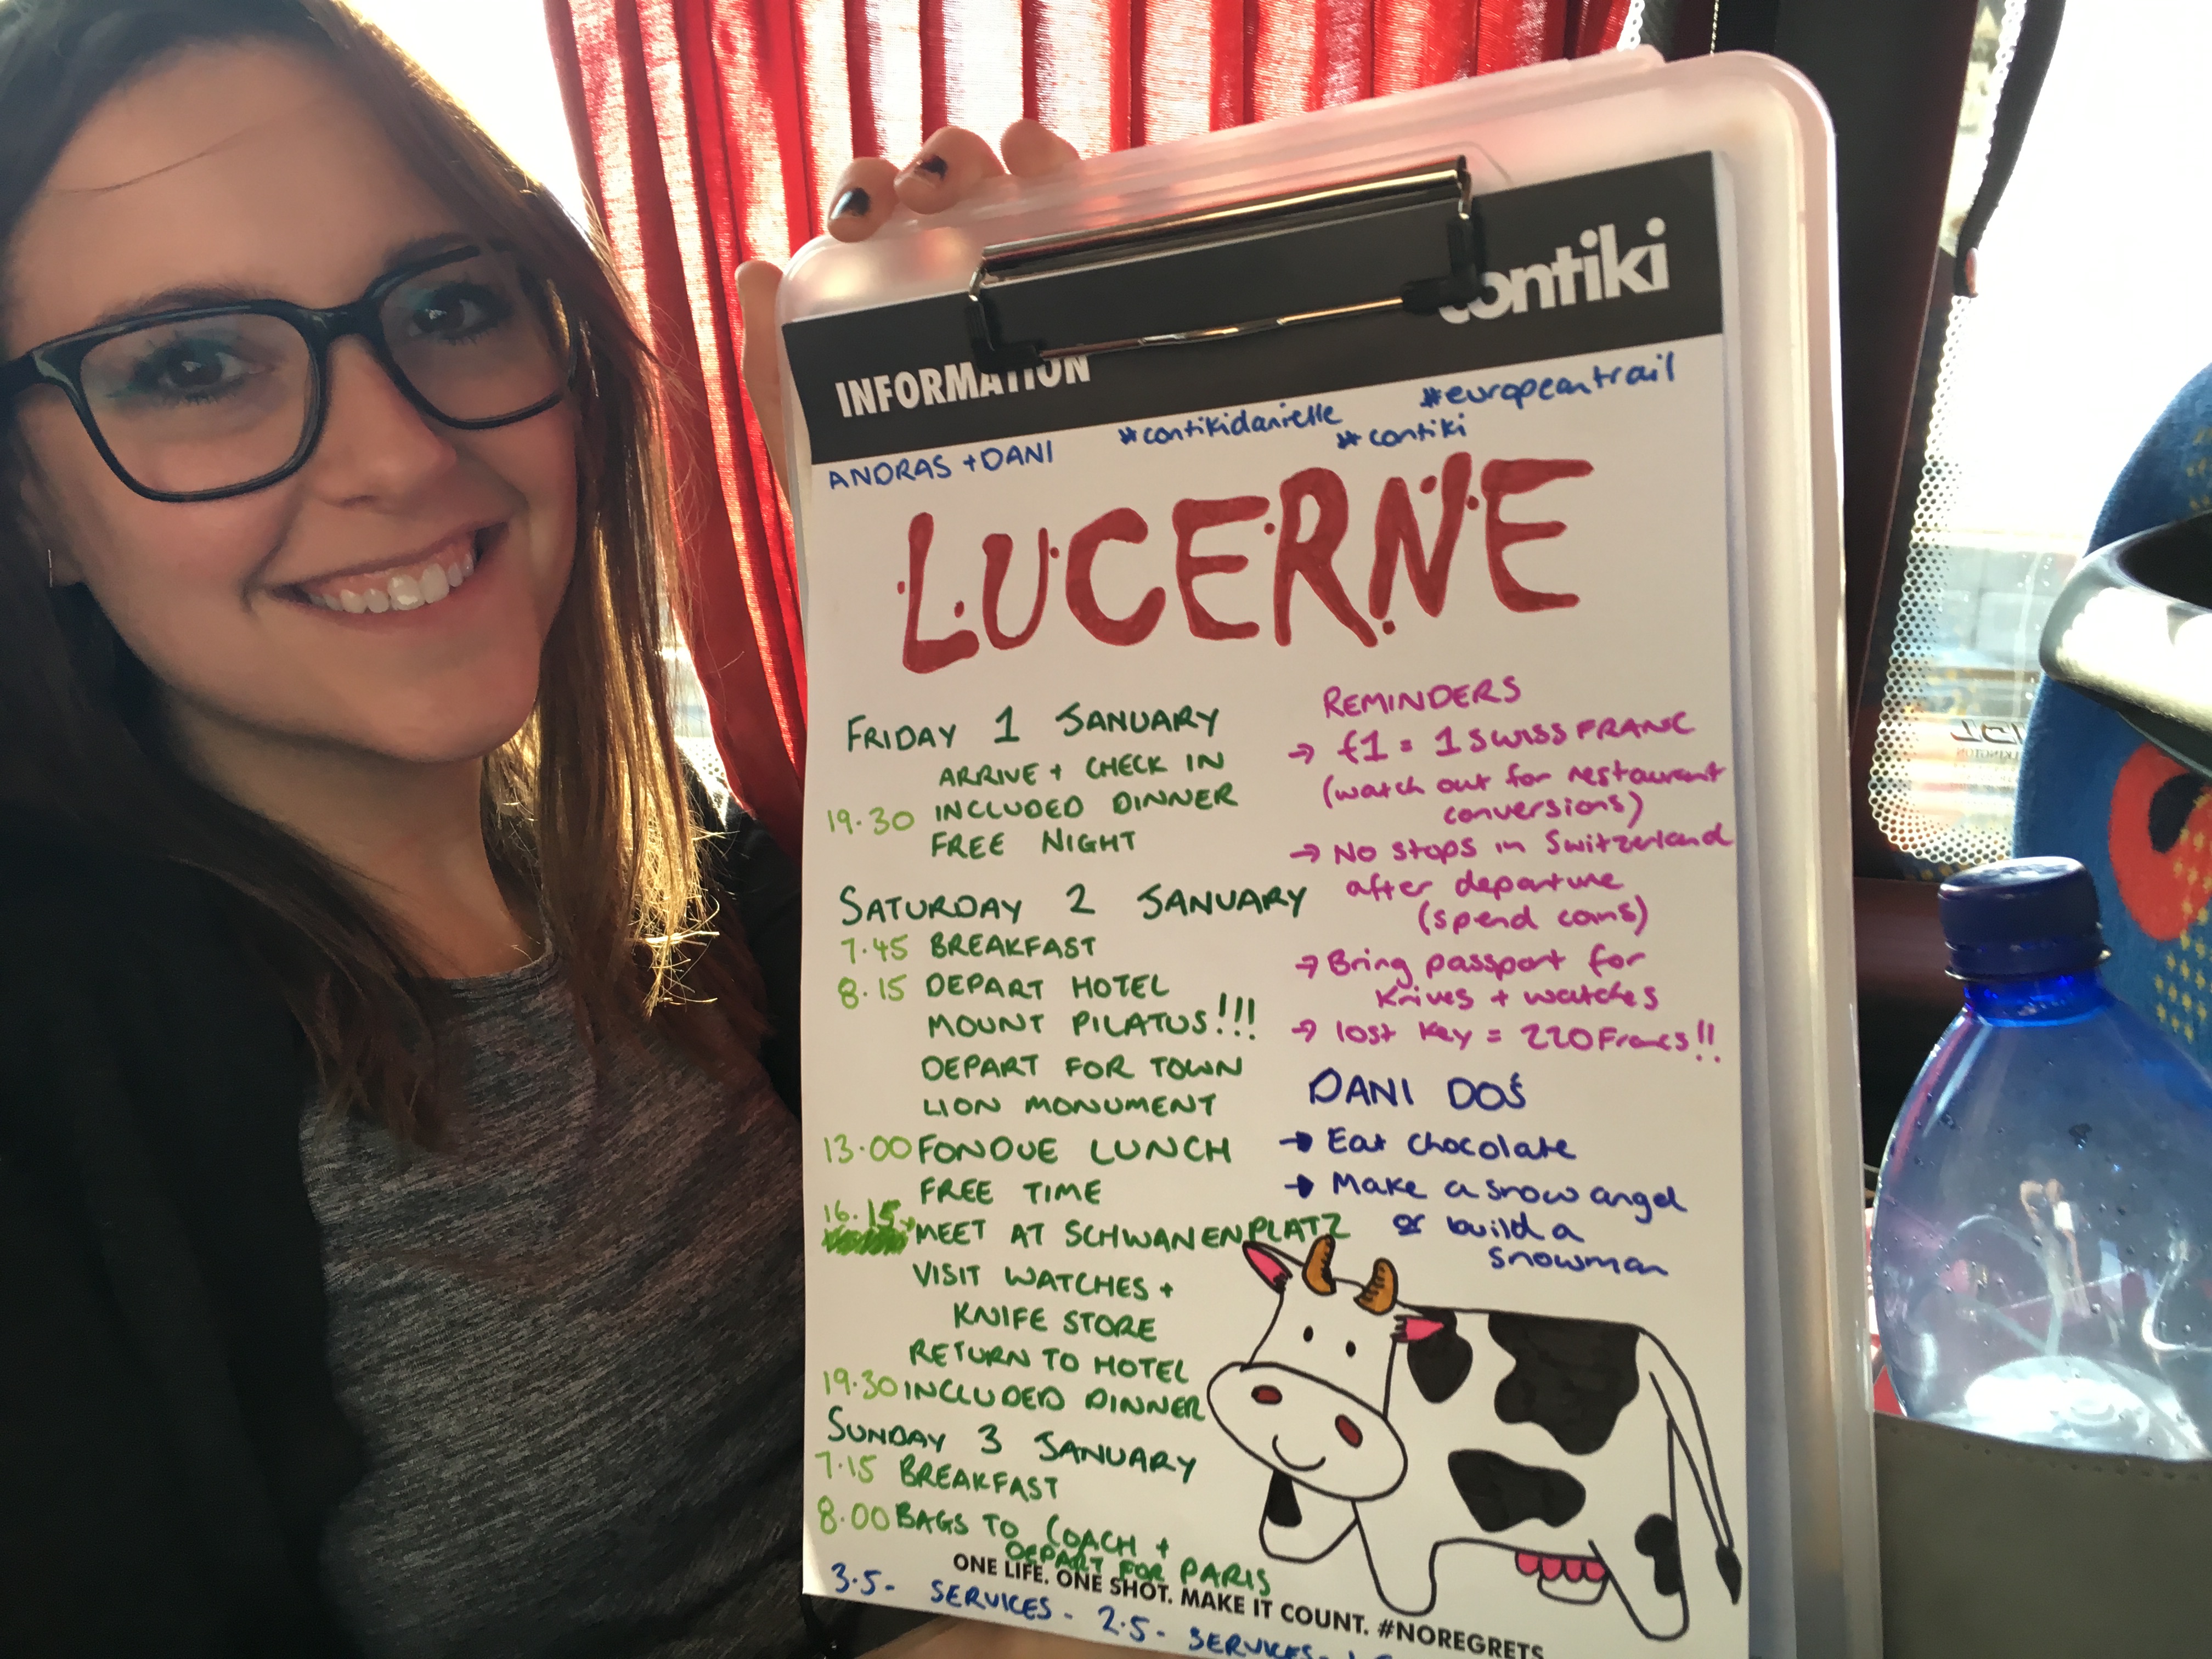 contiki
INFORMATION
ANDRAS + DANI
#contikidanielle
#europeantrail
#contiki
LUCERNE
FRIDAY 1 JANUARY
ARRIVE + CHECK IN
19.30 INCLUDED DINNER
FREE NIGHT
SATURDAY 2 JANUARY
7.45 BREAKFAST
8.15 DEPART HOTEL
MOUNT PILATUS!!!
DEPART FOR TOWN
LION MONUMENT
13.00 FONDUE LUNCH
FREE TIME
16.15 MEET AT SCHWANENPLATZ
VISIT WATCHES +
KNIFE STORE
RETURN TO HOTEL
19.30 INCLUDED DINNER
SUNDAY 3 JANUARY
7.15 BREAKFAST
8.00 BAGS TO COACH +
DEPART FOR PARIS
REMINDERS
→ £1 = 1 SWISS FRANC
(watch out for restaurant
conversions)
→ No stops in Switzerland
after departure
(spend coins)
→ Bring passport for
Knives + watches
→ lost key = 220 Francs!!
DANI DO'S
→ Eat chocolate
→ Make a snow angel
or build a
snowman
ONE LIFE. ONE SHOT. MAKE IT COUNT. #NOREGRETS
3.5 - SERVICES - 2.5 - SERVICES -